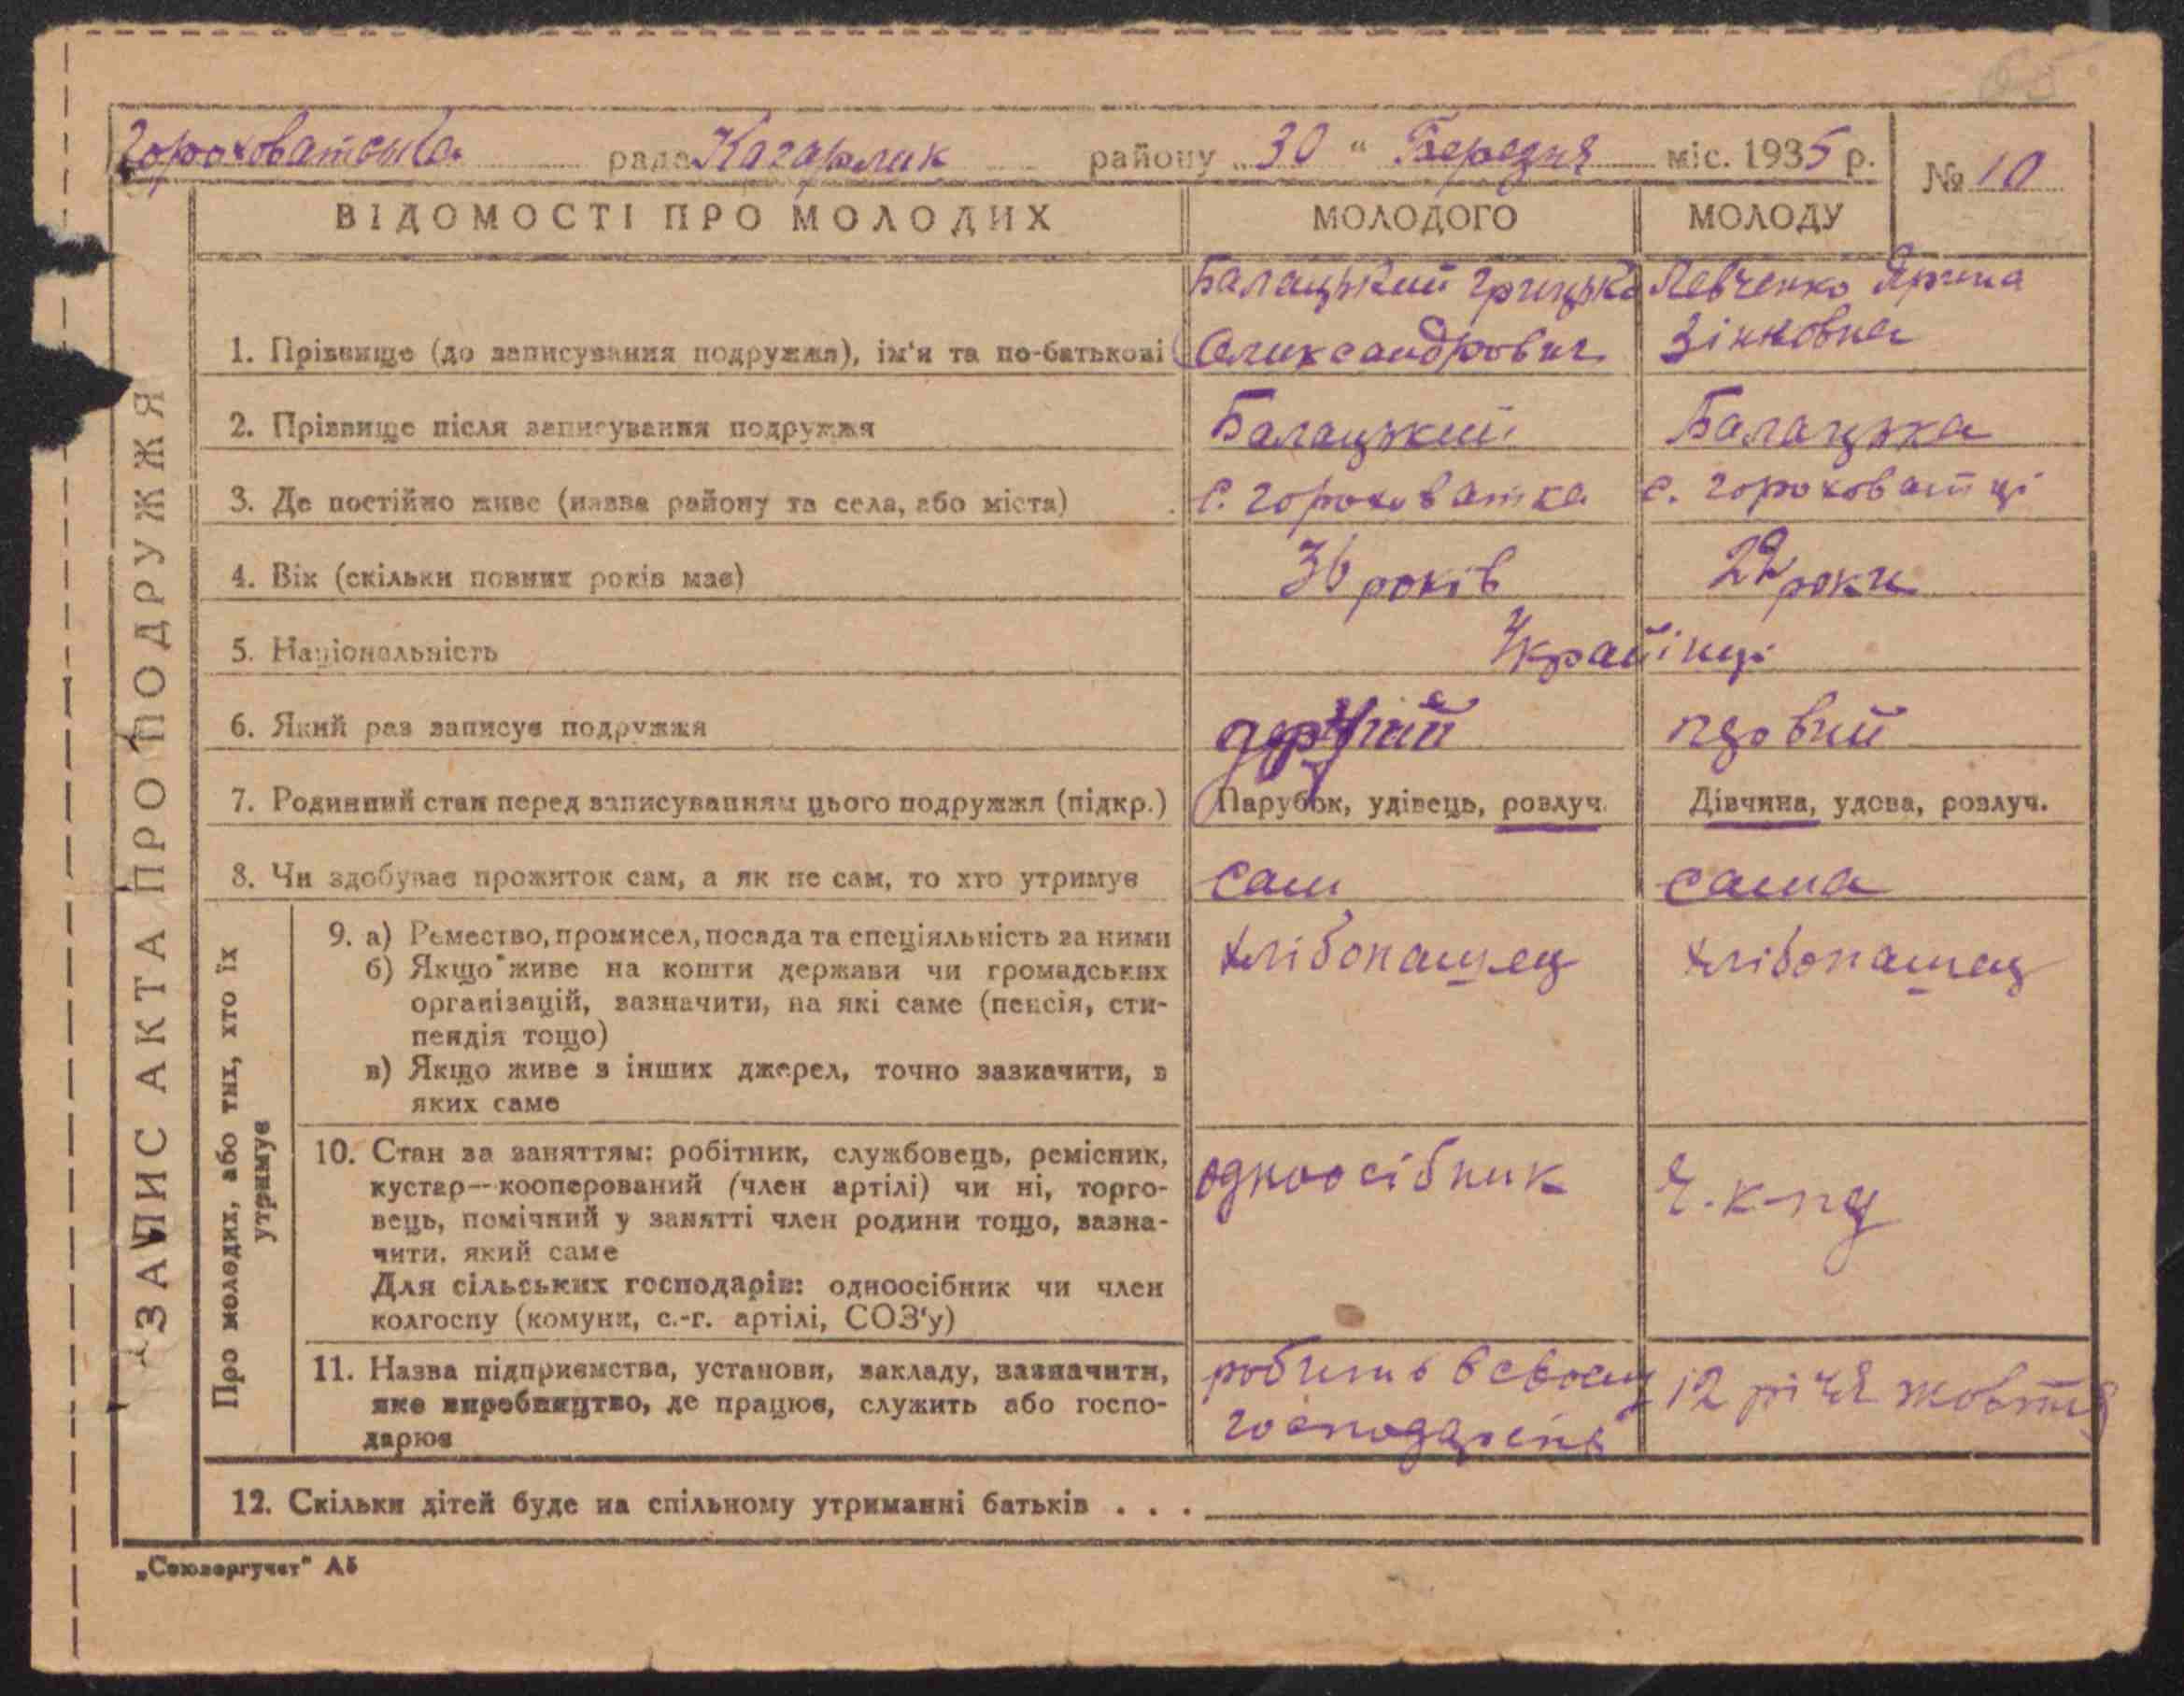 Гороховатська рада Кагарлик району „ 30 “ Березня міс. 1935 р.
№ 10
ВІДОМОСТІ ПРО МОЛОДИХ
МОЛОДОГО
МОЛОДУ
ЗАПИС АКТА ПРО ПОДРУЖЖЯ
1. Прізвище (до записування подружжя), ім'я та по-батькові
Балацький Грицько
Олександрович
Левченко Ярина
Зінновна
2. Прізвище після записування подружжя
Балацький
Балацька
3. Де постійно живе (назва району та села, або міста)
с. Гороховатка
с. Гороховатці
4. Вік (скільки повних років має)
36 років
22 роки
5. Національність
Українці
6. Який раз записує подружжя
другий
7. Родинний стан перед записуванням цього подружжя (підкр.)
Парубок, удівець, розлуч.
Дівчина, удова, розлуч.
8. Чи здобуває прожиток сам, а як не сам, то хто утримує
сам
сама
Про молодих, або тих, хто їх
утримує
9. а) Ремество, промисел, посада та спеціяльність за ними
б) Якщо живе на кошти держави чи громадських
організацій, зазначити, на які саме (пенсія, сти-
пендія тощо)
в) Якщо живе з інших джерел, точно зазначити, з
яких саме
хлібопашец
хлібопашец
10. Стан за заняттям: робітник, службовець, ремісник,
кустар—кооперований (член артілі) чи ні, торго-
вець, помічний у занятті член родини тощо, зазна-
чити, який саме
Для сільських господарів: одноосібник чи член
колгоспу (комуни, с.-г. артілі, СОЗ'у)
одноосібник
11. Назва підприємства, установи, закладу, зазначити,
яке виробництво, де працює, служить або госпо-
дарює
робить в своєму
господарстві
12 річя жовтня
12. Скільки дітей буде на спільному утриманні батьків . . .
„Союзоргучет" А5